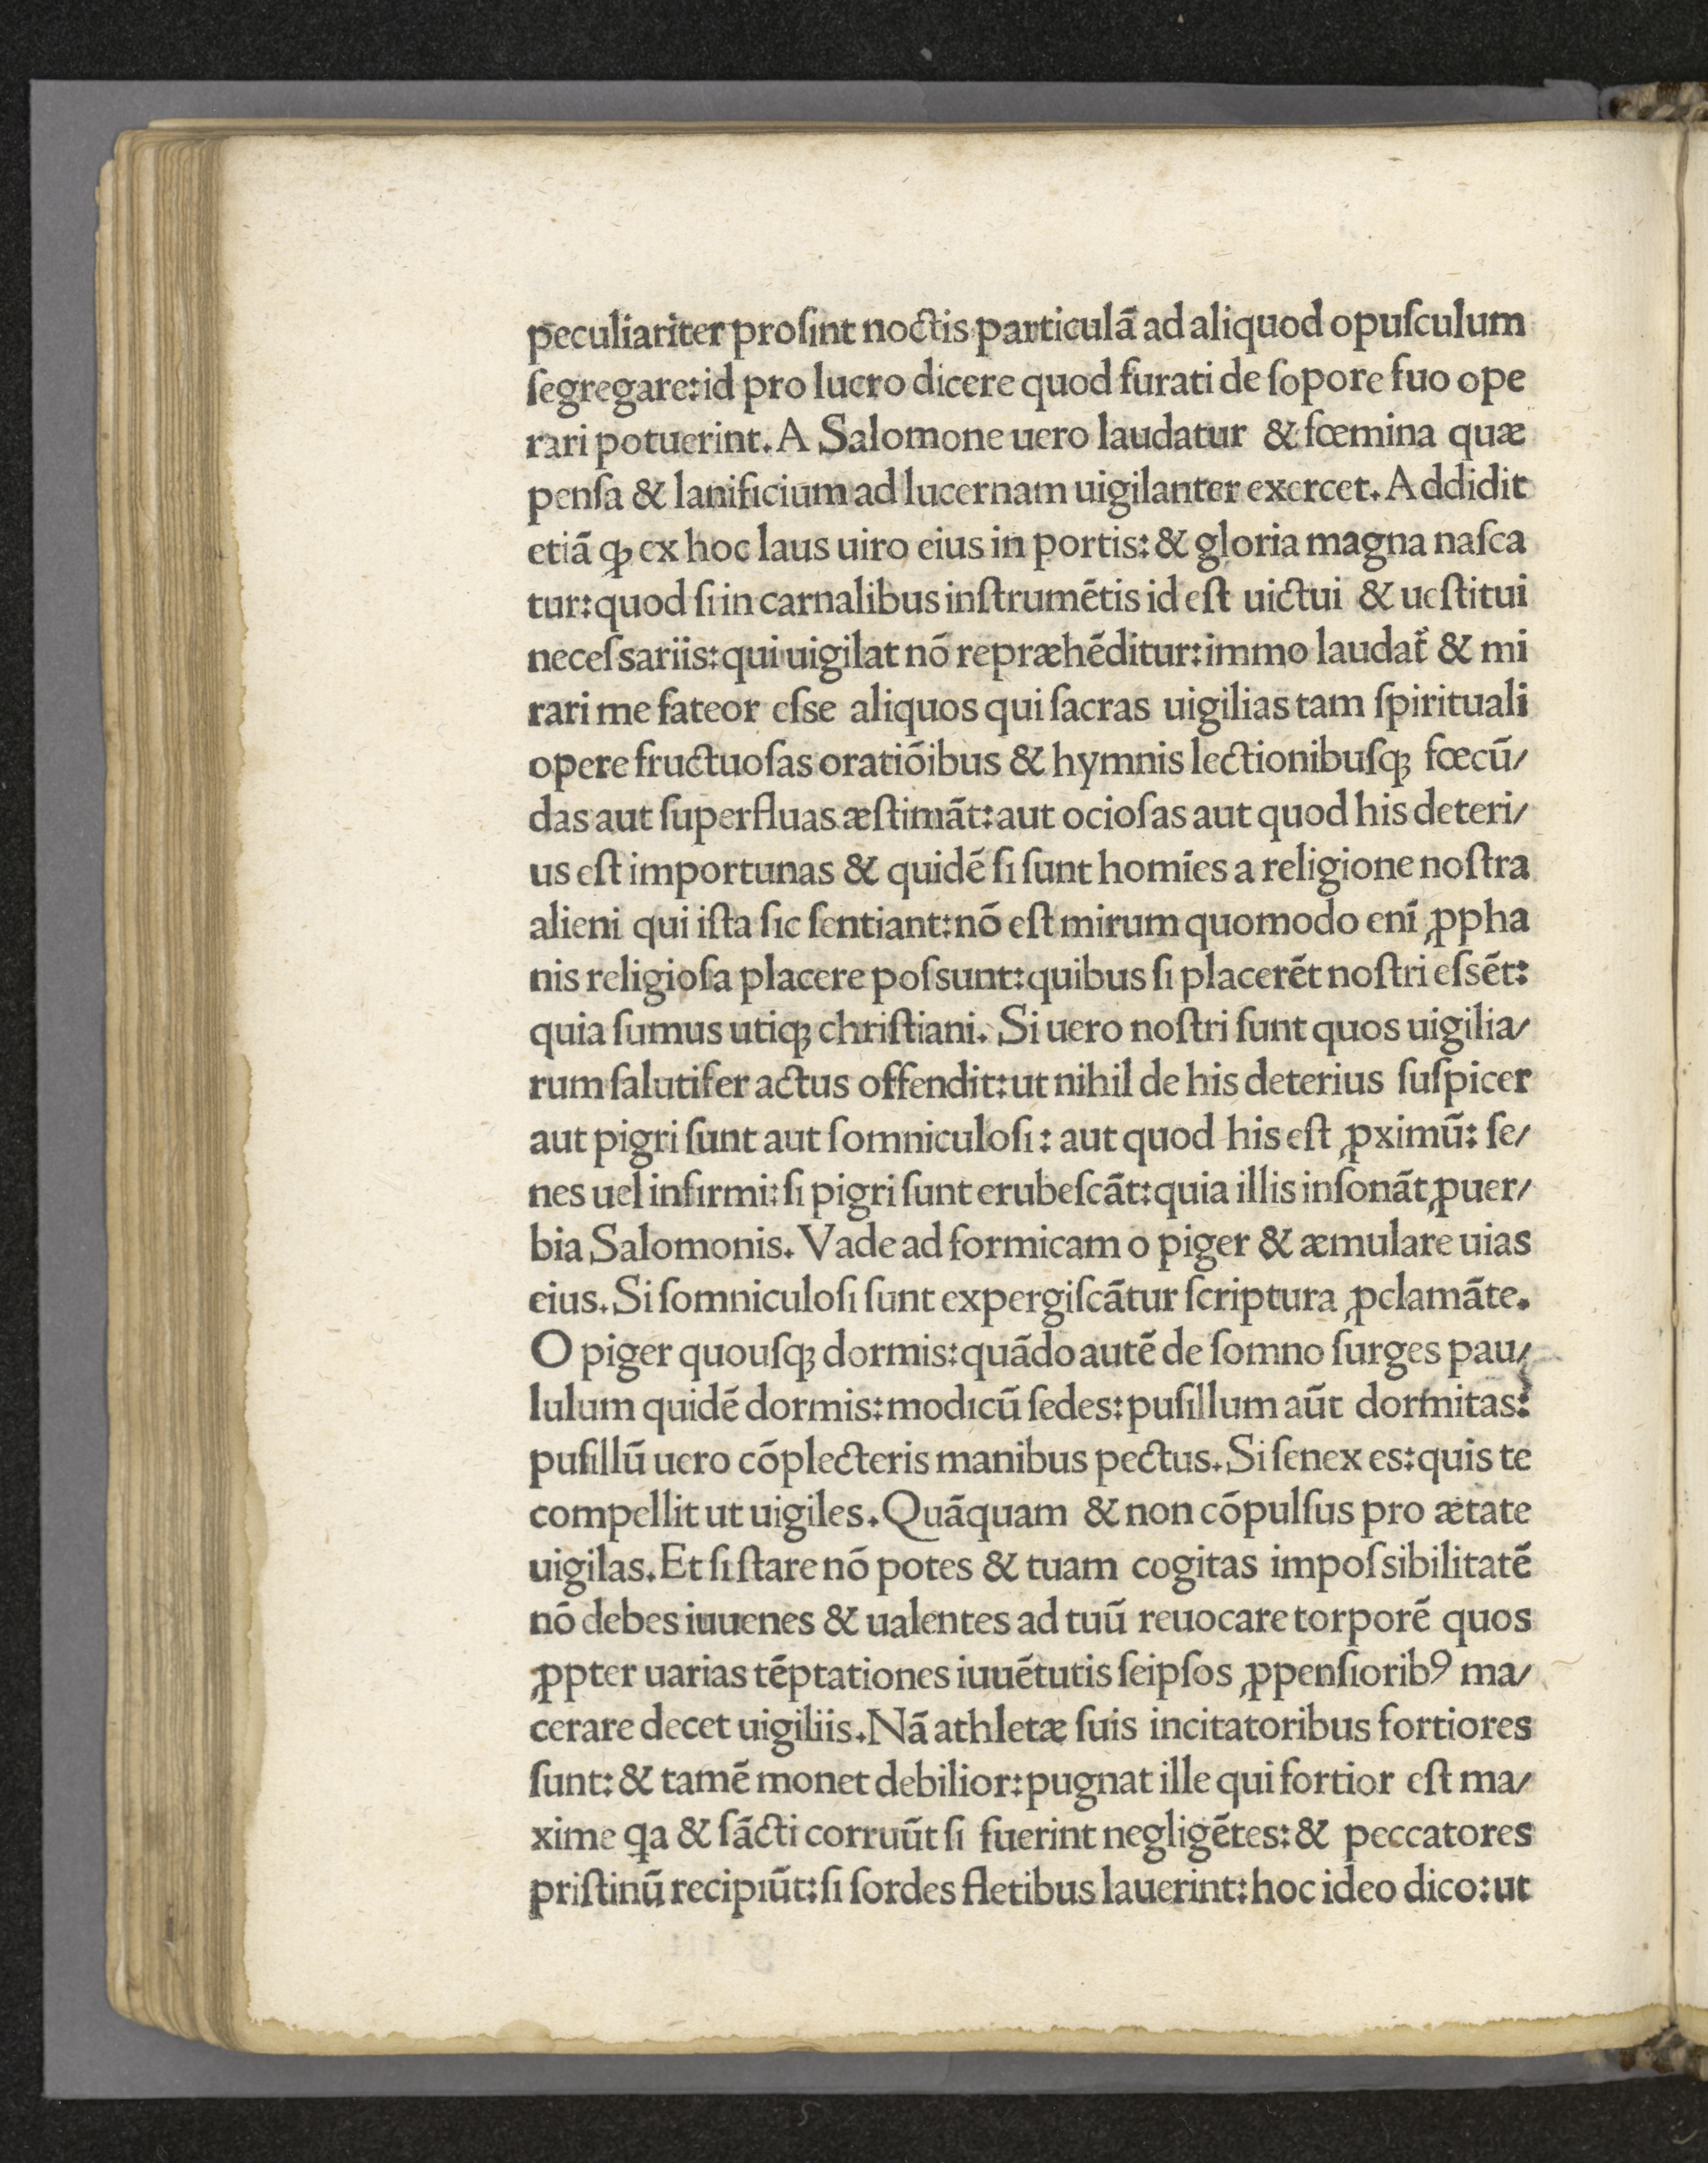 peculiariter proſint noctis particulā ad aliquod opuſculum
ſegregare:id pro lucro dicere quod furati de ſopore ſuo ope
rari potuerint. A Salomone uero laudatur & fœmina quæ
penſa & lanificium ad lucernam uigilanter exercet. Addidit
etiā ꝙ ex hoc laus uiro eius in portis: & gloria magna naſca
tur:quod ſi in carnalibus inſtrumētis id eſt uictui & ueſtitui
neceſsariis:qui uigilat nō repræhēditur:immo laudat᷑ & mi
rari me fateor eſse aliquos qui ſacras uigilias tam ſpirituali
opere fructuoſas oratiōibus & hymnis lectionibuſqꝫ fœcū/
das aut ſuperfluas æſtimāt:aut ocioſas aut quod his deteri/
us eſt importunas & quidē ſi ſunt homīes a religione noſtra
alieni qui iſta ſic ſentiant:nō eſt mirum quomodo enī ꝓpha
nis religioſa placere poſsunt:quibus ſi placerēt noſtri eſsēt:
quia ſumus utiqꝫ chriſtiani. Si uero noſtri ſunt quos uigilia/
rum ſalutifer actus offendit:ut nihil de his deterius ſuſpicer
aut pigri ſunt aut ſomniculoſi: aut quod his eſt ꝓximū: ſe/
nes uel infirmi:ſi pigri ſunt erubeſcāt:quia illis inſonāt ꝓuer/
bia Salomonis. Vade ad formicam o piger & æmulare uias
eius. Si ſomniculoſi ſunt expergiſcātur ſcriptura ꝓclamāte.
O piger quouſqꝫ dormis:quādo autē de ſomno ſurges pau/
lulum quidē dormis:modicū ſedes:puſillum aūt dormitas:
puſillū uero cōplecteris manibus pectus. Si ſenex es:quis te
compellit ut uigiles. Quāquam & non cōpulſus pro ætate
uigilas. Et ſi ſtare nō potes & tuam cogitas impoſsibilitatē
nō debes iuuenes & ualentes ad tuū reuocare torporē quos
ꝓpter uarias tēptationes iuuētutis ſeipſos ꝓpenſioribꝰ ma/
cerare decet uigiliis. Nā athletæ ſuis incitatoribus fortiores
ſunt: & tamē monet debilior:pugnat ille qui fortior eſt ma/
xime qa & ſācti corruūt ſi fuerint negligētes: & peccatores
priſtinū recipiūt:ſi ſordes fletibus lauerint:hoc ideo dico:ut